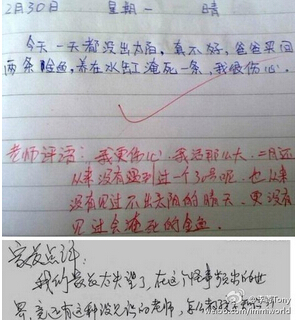 2月30日 星期一 晴
今天一天都没出太阳，真不好，爸爸买回
两条金鱼，养在水缸淹死一条，我很伤心。
老师评语：我更伤心，我活那么大，二月还
从来没有碰到过一个30号呢，也从来
没有见过不出太阳的晴天，更没有
见过会淹死的金鱼。
家长点评：
我们家长太失望了，在这个怪事频出的世
界，竟还有这种没见识的老师，怎么教
weibo.com/immwworld